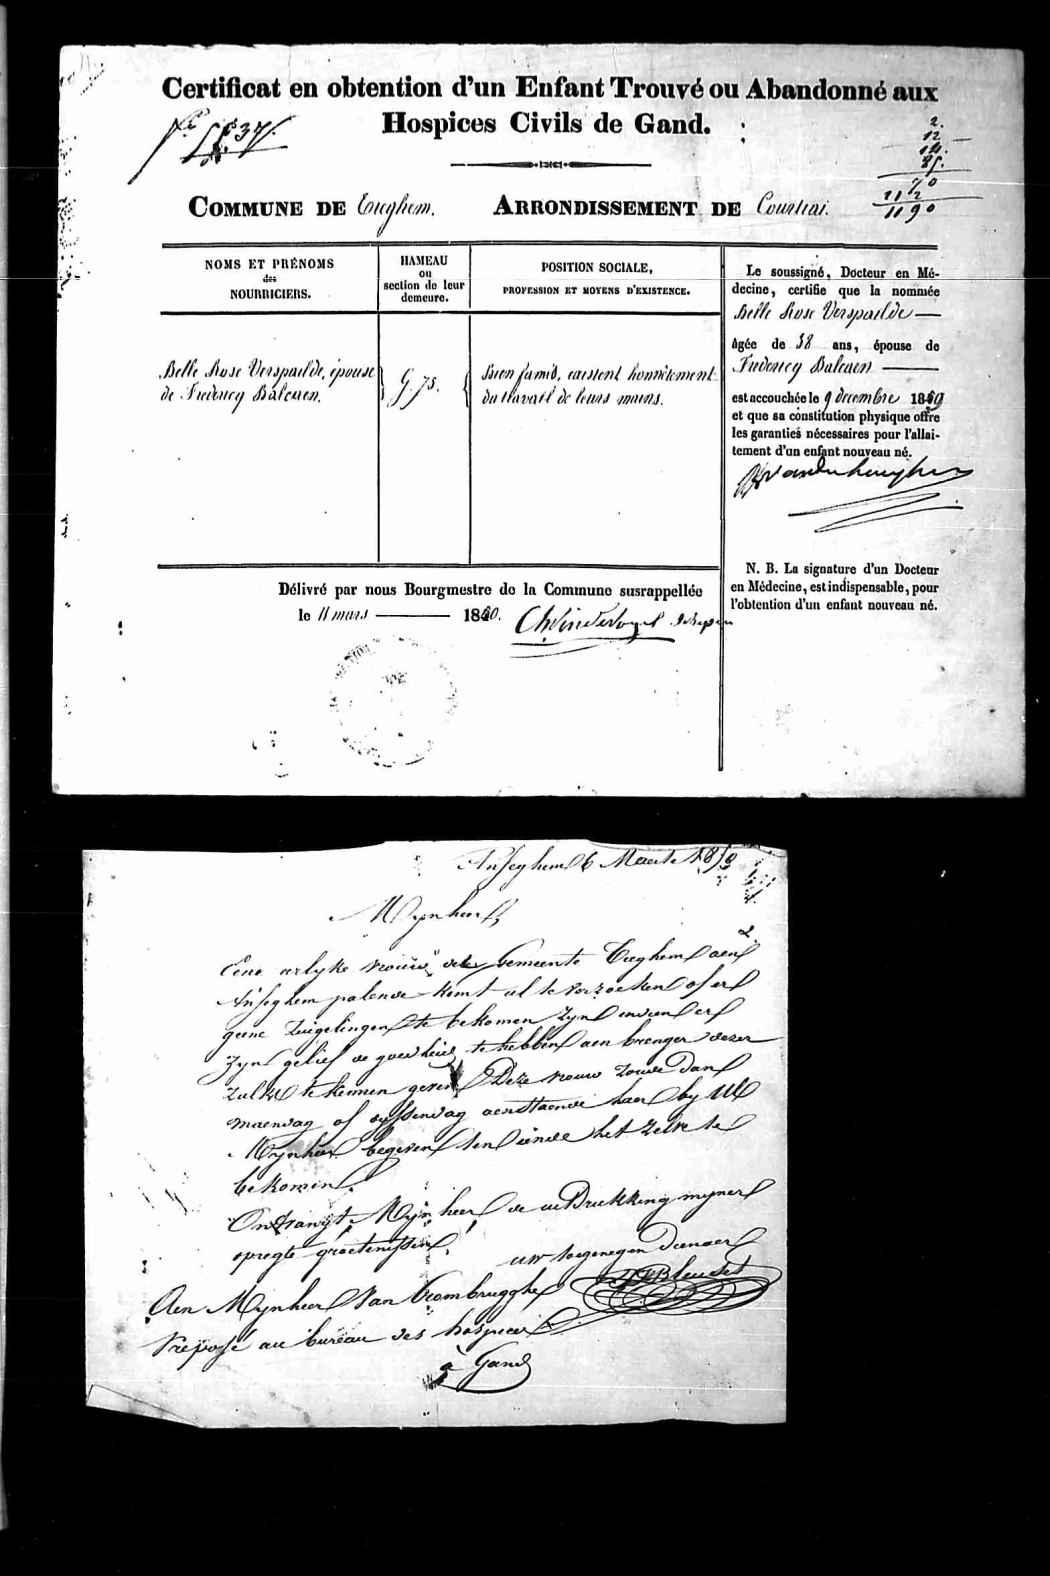 Certificat en obtention d'un Enfant Trouvé ou Abandonné aux
Hospices Civils de Gand.
2.
12
70
1190
COMMUNE DE Tieghem. ARRONDISSEMENT DE Courtrai.
NOMS ET PRÉNOMS
des
NOURRICIERS.
HAMEAU
ou
section de leur
demeure.
POSITION SOCIALE,
PROFESSION ET MOYENS D'EXISTENCE.
Belle Rose Verspaelde, épouse
de Balcaen.
G. 75.
Bien famés, existent honnêtement
du travail de leurs mains.
Le soussigné, Docteur en Mé-
decine, certifie que la nommée
Belle Rose Verspaelde
âgée de 38 ans, épouse de
Balcaen
est accouchée le 9 décembre 1849
et que sa constitution physique offre
les garanties nécessaires pour l'allai-
tement d'un enfant nouveau né.
N. B. La signature d'un Docteur
en Médecine, est indispensable, pour
l'obtention d'un enfant nouveau né.
Délivré par nous Bourgmestre de la Commune susrappellée
le 11 mars 1850.
Anseghem 6 Maerte
Mynheer,
Eene eerlyke vrouw der Gemeente Tieghem aen
Anseghem palende komt ul te verzoeken of er
geene zuigelingen te bekomen zyn en
zyn gelief de goedheid te hebben aen brenger dezer
zulks te kennen geven Deze vrouw zoude dan
maendag of dyssendag aenstaende haer by Ul
Mynheer begeven ten einde het zelve te
bekomen.
Ontvangt, Mynheer, de uitDrukking myner
opregte groetenissen,
uw toegenegen Dienaer
Aen Mynheer Van Crombrugghe
Préposé au bureau des hospices
à Gand